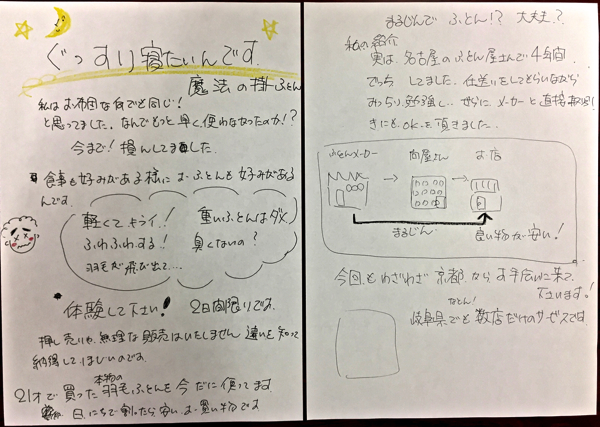 ぐっすり寝たいんです.
魔法の掛ふとん
私はお布団は何でも同じ!
と思ってました。なんでもっと早く使わなかったのか!?
今まで!損んしてました.
食事も好みがある様に お・ふとんも好みがある
んです.
軽くてキライ! 重いふとんはダメ
ふわふわする!! 臭くないの?
羽毛が飛び出て...
体験して下さい! 2日間限りです.
押し売りや無理な販売はいたしません 違いを知って
納得してほしいのです.
21才で買った本物の羽毛ふとんを今だに使ってます
日にちで割ったら安いお買い物です
まるじんで ふとん!? 大丈夫?
私の紹介
実は、名古屋のふとん屋さんで4年間
でっちしてました. 仕送りをしてもらいながら
みっちり勉強し.. さらに メーカーと直接取引
きにもOKを頂きました.
ふとんメーカー 問屋さん お店
まるじん 良い物が安い!
今回もわざわざ京都から お手伝いに来て
下さいます!
なんと!
岐阜県でも数店だけのサービスです